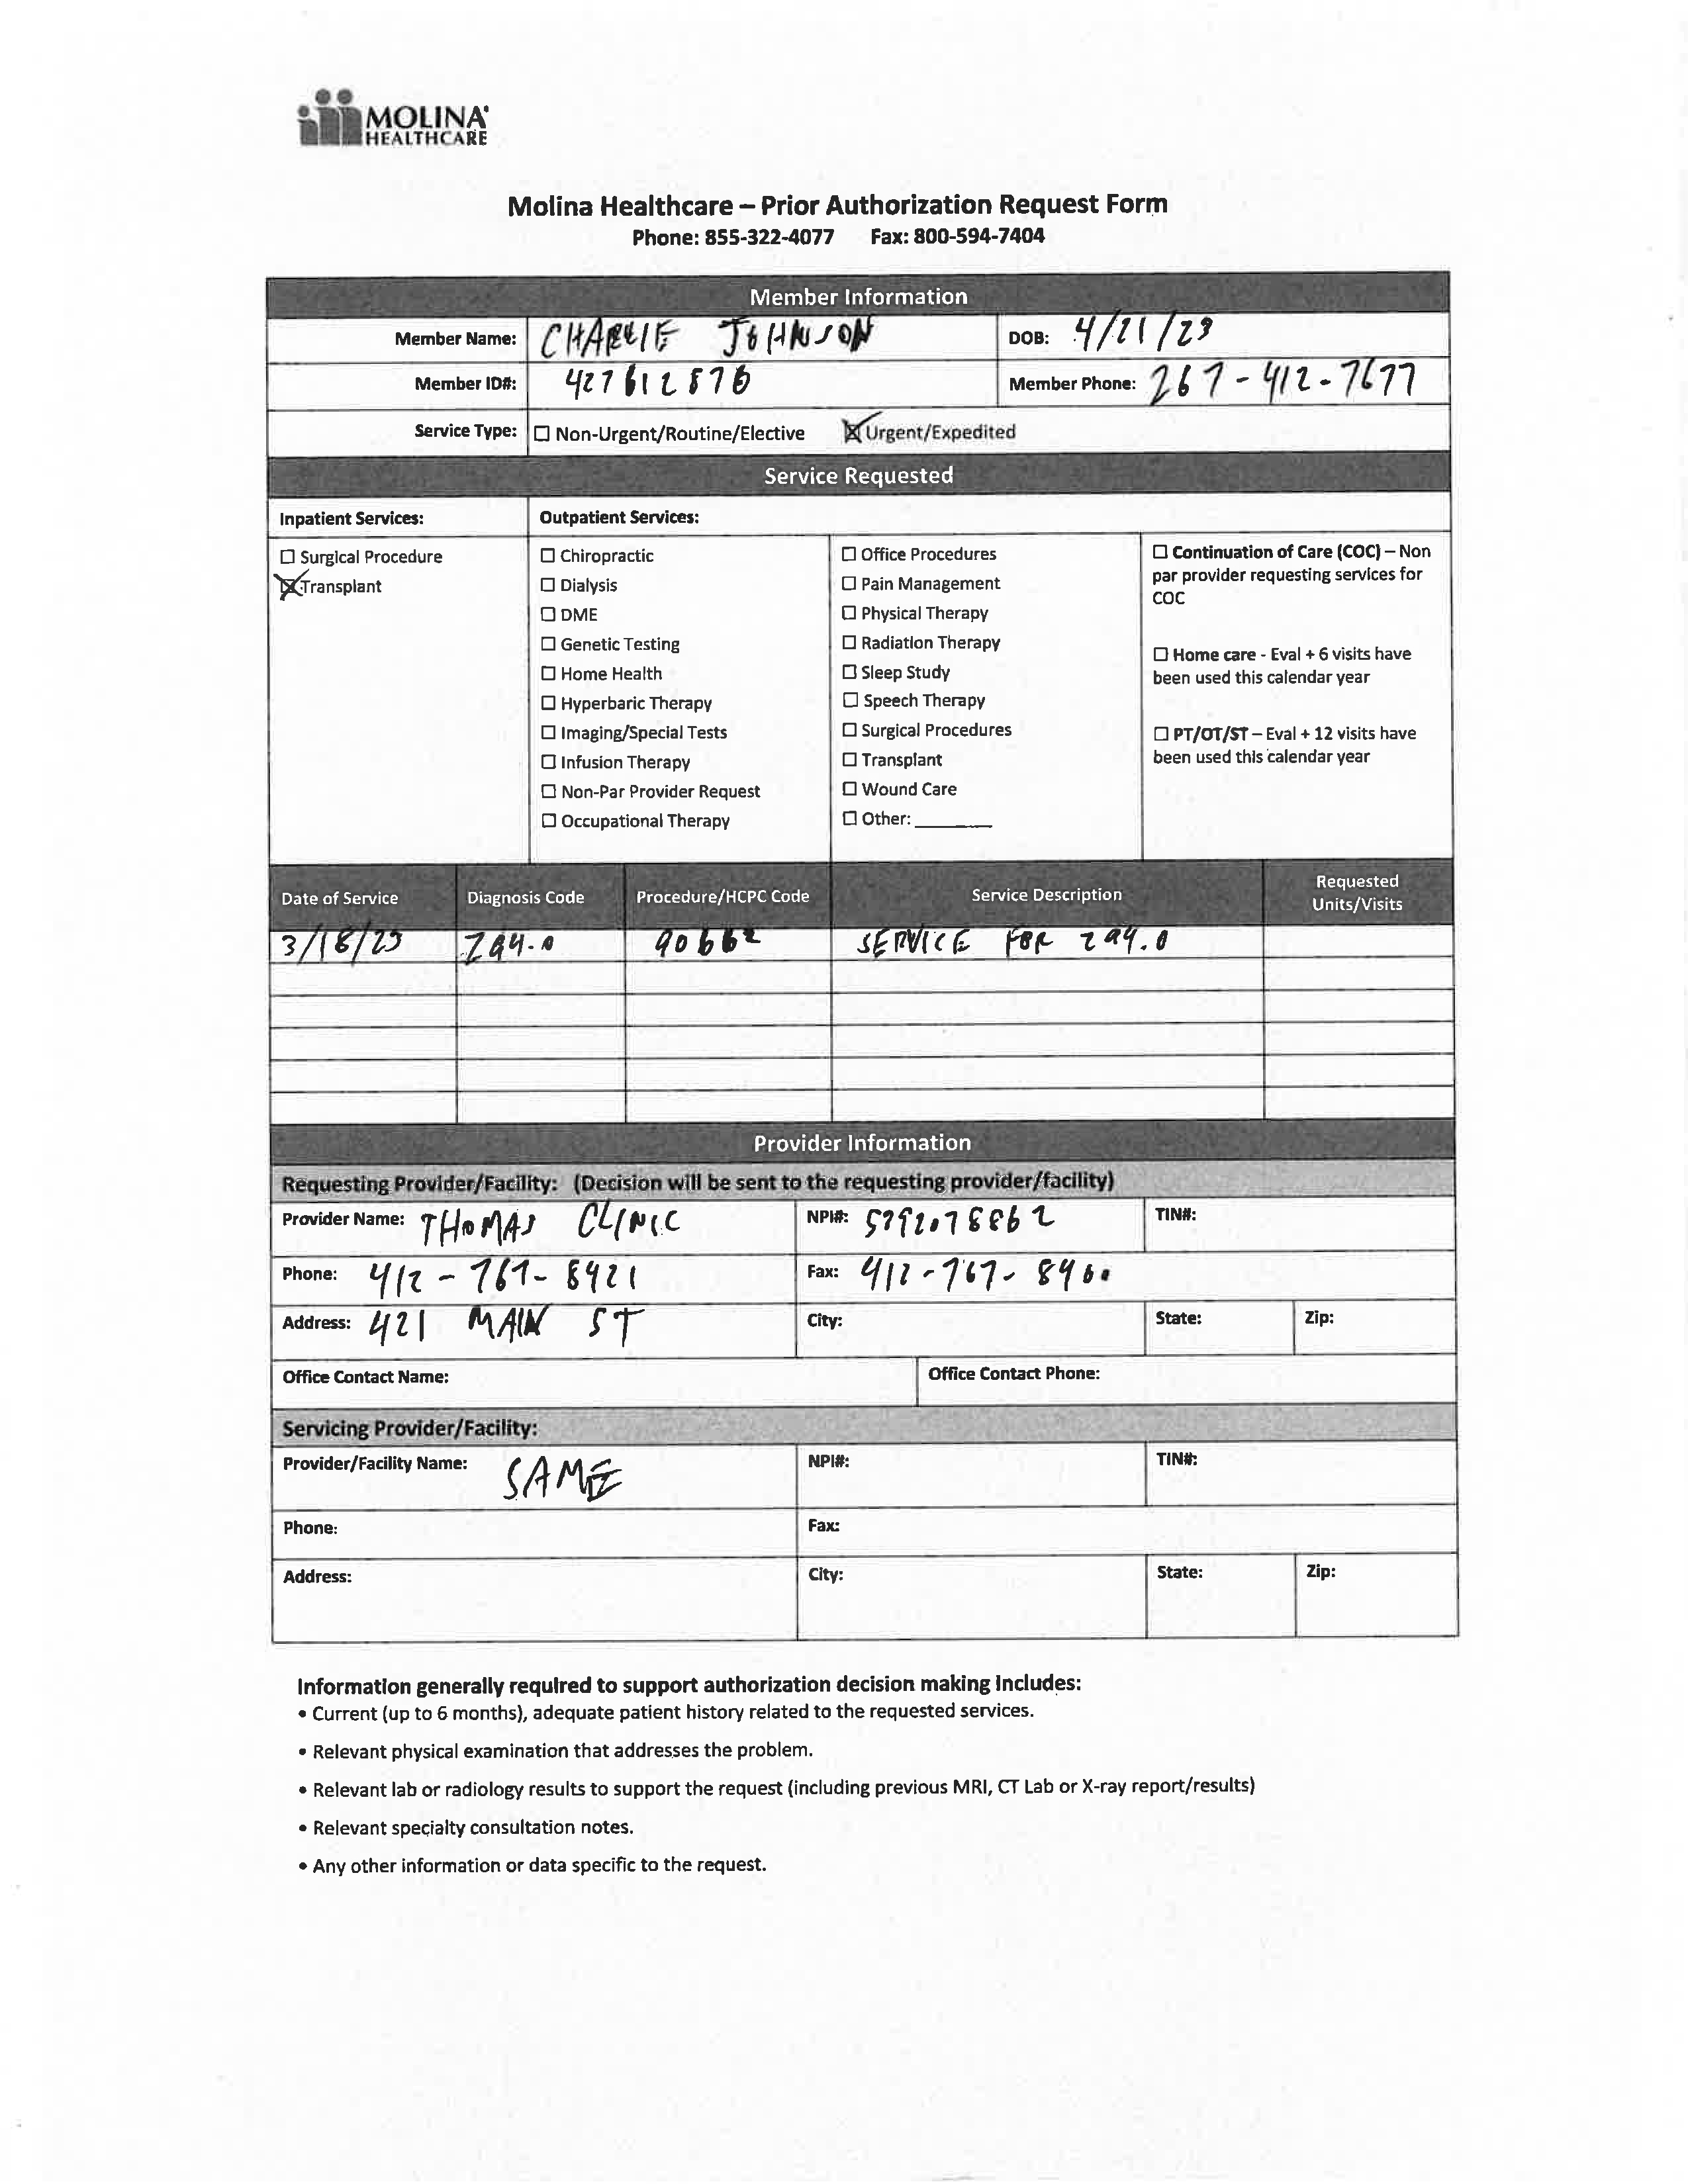 MOLINA
HEALTHCARE
Molina Healthcare – Prior Authorization Request Form
Phone: 855-322-4077 Fax: 800-594-7404
Member Information
Member Name: CHARLIE JOHNSON DOB: 4/21/23
Member ID#: 427612876 Member Phone: 267-412-7677
Service Type: ☐ Non-Urgent/Routine/Elective ☒ Urgent/Expedited
Service Requested
Inpatient Services: Outpatient Services:
☐ Surgical Procedure
☒ Transplant
☐ Chiropractic
☐ Dialysis
☐ DME
☐ Genetic Testing
☐ Home Health
☐ Hyperbaric Therapy
☐ Imaging/Special Tests
☐ Infusion Therapy
☐ Non-Par Provider Request
☐ Occupational Therapy
☐ Office Procedures
☐ Pain Management
☐ Physical Therapy
☐ Radiation Therapy
☐ Sleep Study
☐ Speech Therapy
☐ Surgical Procedures
☐ Transplant
☐ Wound Care
☐ Other: ______
☐ Continuation of Care (COC) – Non
par provider requesting services for
COC
☐ Home care - Eval + 6 visits have
been used this calendar year
☐ PT/OT/ST – Eval + 12 visits have
been used this calendar year
Date of Service Diagnosis Code Procedure/HCPC Code Service Description Requested
Units/Visits
3/18/25 Z94.0 90662 SERVICE FOR Z94.0
Provider Information
Requesting Provider/Facility: (Decision will be sent to the requesting provider/facility)
Provider Name: THOMAS CLINIC NPI#: TIN#:
Phone: 412-767-8421 Fax: 412-767-8960
Address: 421 MAIN ST City: State: Zip:
Office Contact Name: Office Contact Phone:
Servicing Provider/Facility:
Provider/Facility Name: SAME NPI#: TIN#:
Phone: Fax:
Address: City: State: Zip:
Information generally required to support authorization decision making includes:
• Current (up to 6 months), adequate patient history related to the requested services.
• Relevant physical examination that addresses the problem.
• Relevant lab or radiology results to support the request (including previous MRI, CT Lab or X-ray report/results)
• Relevant specialty consultation notes.
• Any other information or data specific to the request.